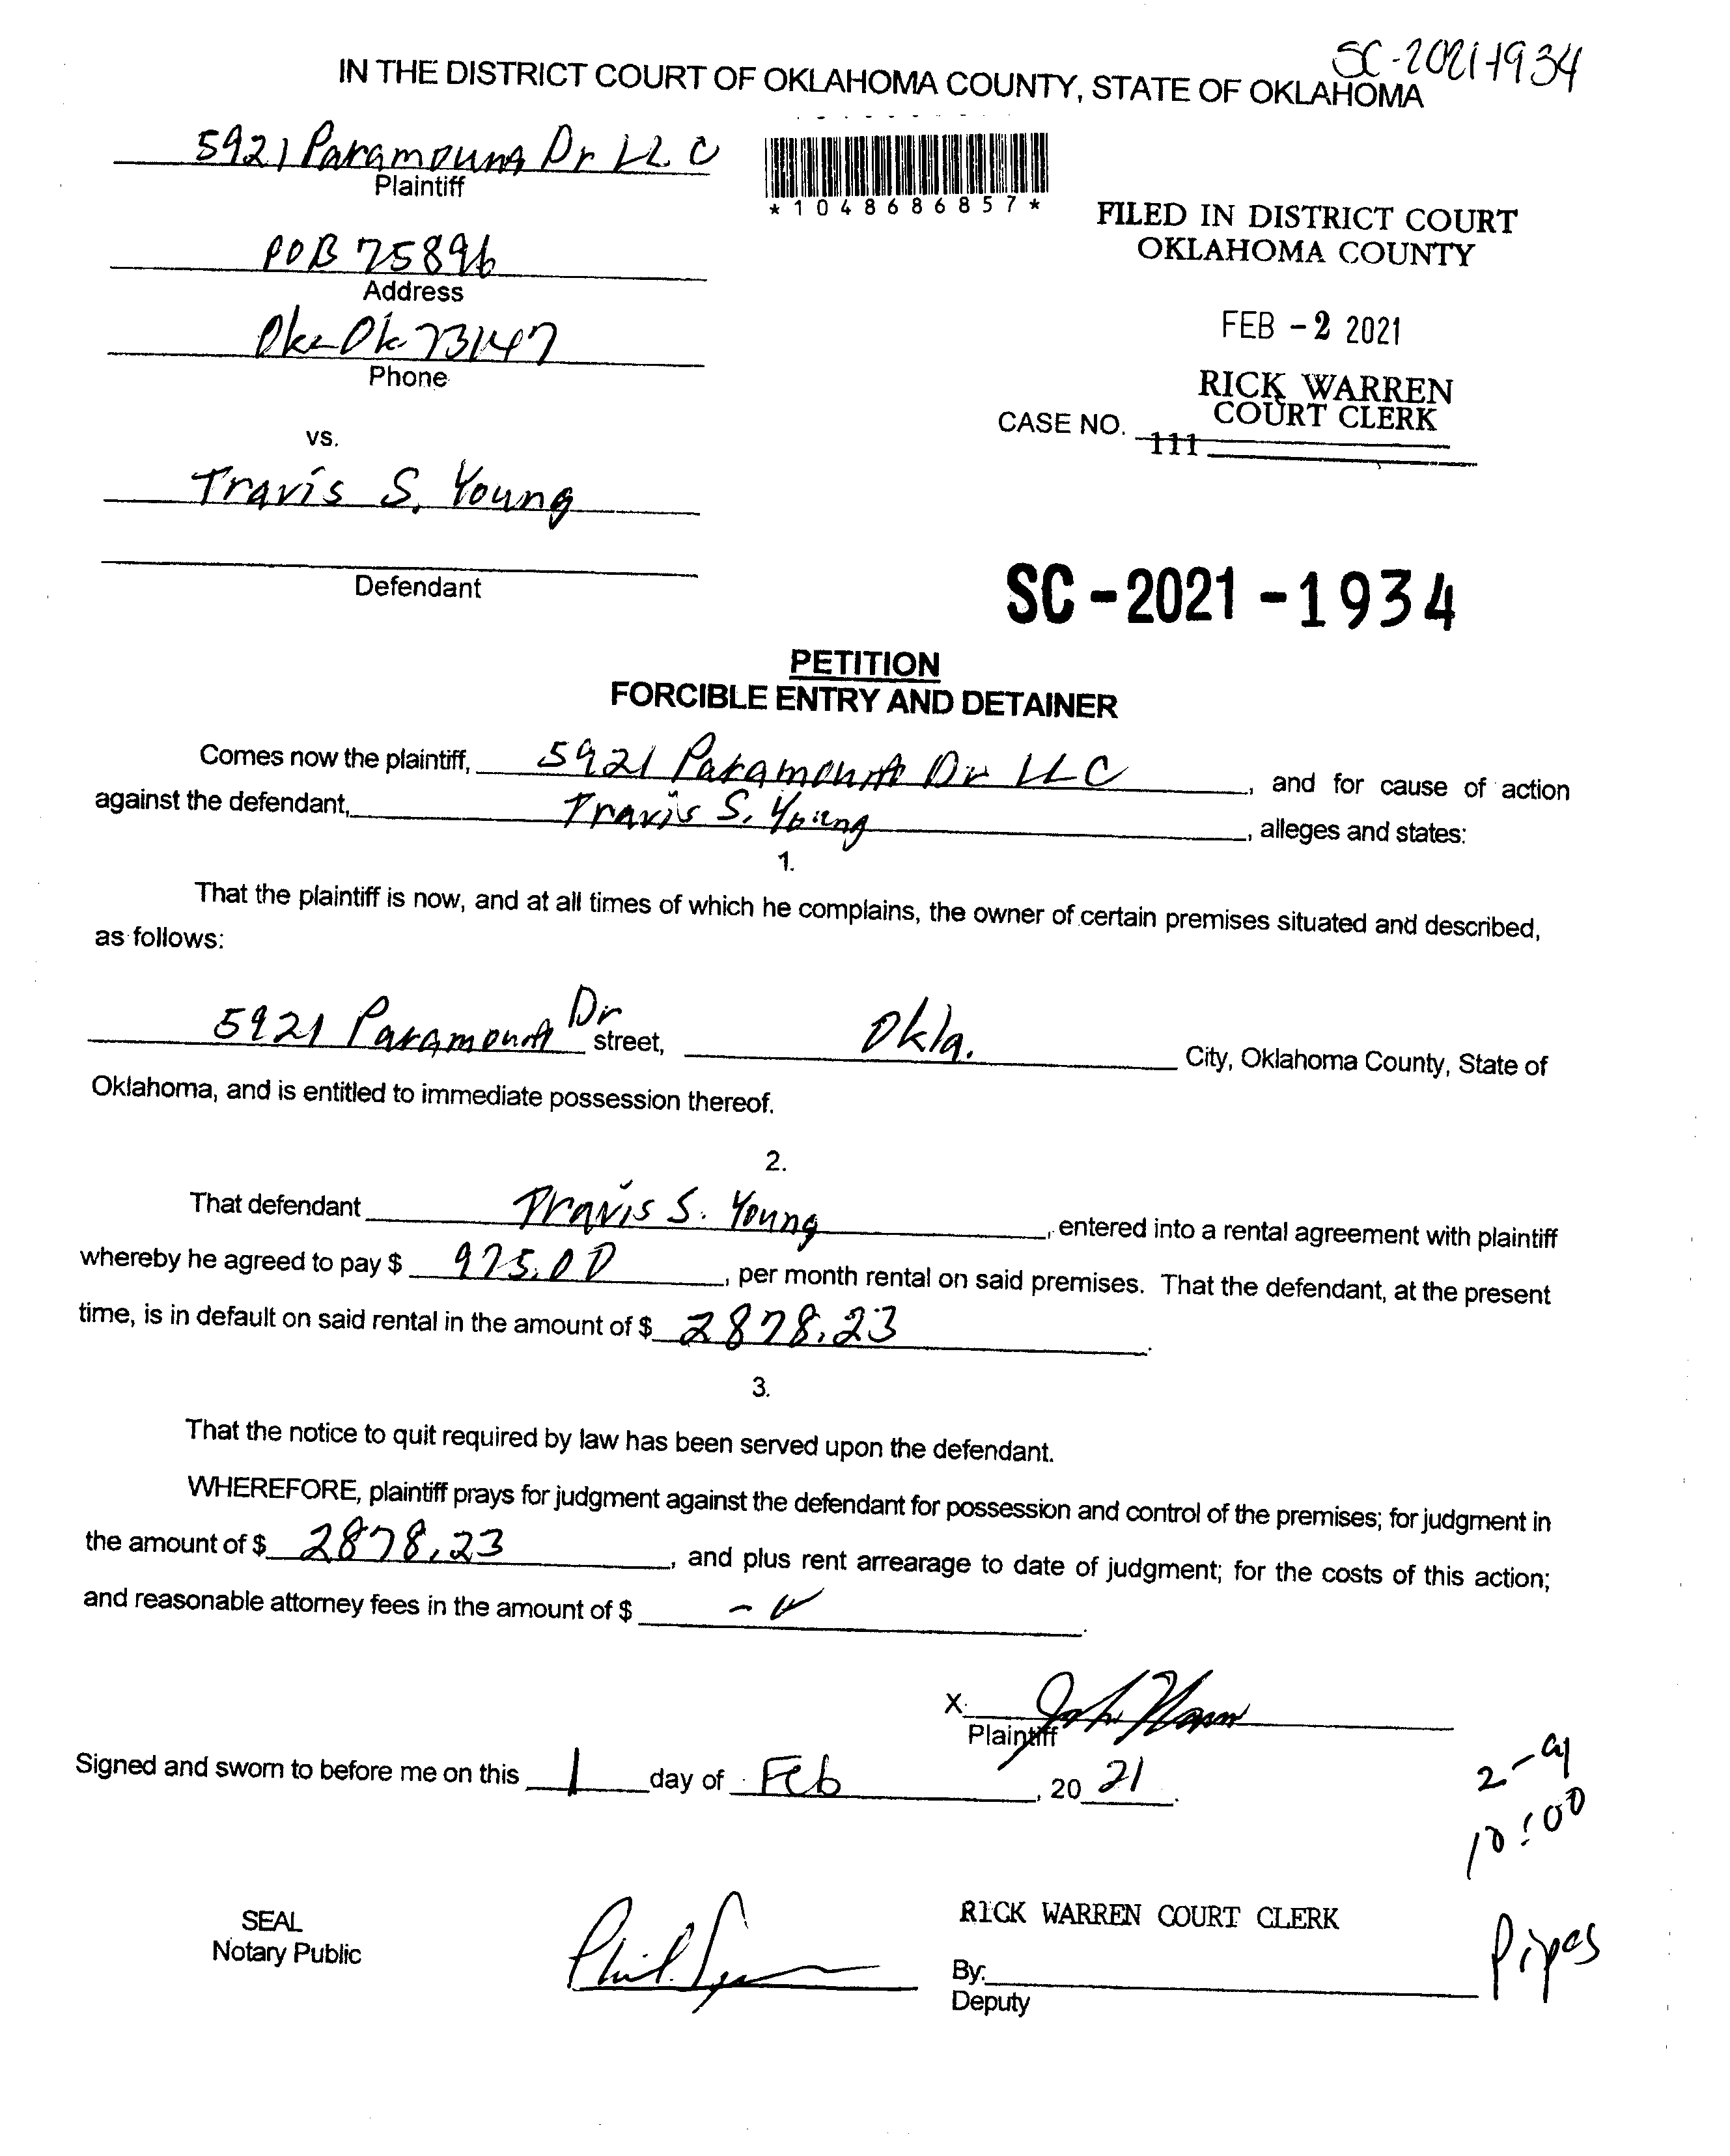 SC-2021-1934
IN THE DISTRICT COURT OF OKLAHOMA COUNTY, STATE OF OKLAHOMA
5921 Paramount Dr LLC
Plaintiff
*1048686857*
FILED IN DISTRICT COURT
OKLAHOMA COUNTY
POB 75896
Address
FEB -2 2021
Okc Ok 73147
Phone
RICK WARREN
COURT CLERK
CASE NO.
111
vs.
Travis S. Young
Defendant
SC-2021-1934
PETITION
FORCIBLE ENTRY AND DETAINER
Comes now the plaintiff, 5921 Paramount Dr LLC, and for cause of action
against the defendant, Travis S. Young, alleges and states:
1.
That the plaintiff is now, and at all times of which he complains, the owner of certain premises situated and described,
as follows:
5921 Paramount Dr street, Okla. City, Oklahoma County, State of
Oklahoma, and is entitled to immediate possession thereof.
2.
That defendant Travis S. Young, entered into a rental agreement with plaintiff
whereby he agreed to pay $ 975.00, per month rental on said premises. That the defendant, at the present
time, is in default on said rental in the amount of $ 2878.23.
3.
That the notice to quit required by law has been served upon the defendant.
WHEREFORE, plaintiff prays for judgment against the defendant for possession and control of the premises; for judgment in
the amount of $ 2878.23, and plus rent arrearage to date of judgment; for the costs of this action;
and reasonable attorney fees in the amount of $
X. John
Plaintiff
Signed and sworn to before me on this 1 day of Feb, 2021.
2-9
10:00
SEAL
Notary Public
Phil
RICK WARREN COURT CLERK
By:
Deputy
Pipes